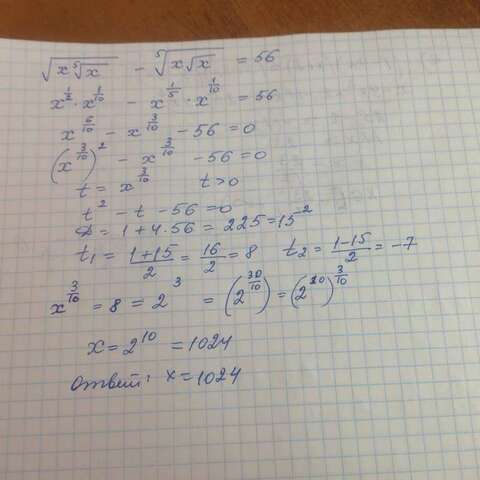 √(x ⁵√x) − ⁵√(x√x) = 56
x^(1/2) · x^(1/10) − x^(1/5) · x^(1/10) = 56
x^(6/10) − x^(3/10) − 56 = 0
(x^(3/10))² − x^(3/10) − 56 = 0
t = x^(3/10)  t > 0
t² − t − 56 = 0
D = 1 + 4·56 = 225 = 15²
t₁ = (1+15)/2 = 16/2 = 8  t₂ = (1−15)/2 = −7
x^(3/10) = 8 = 2³ = (2^(30/10)) = (2^10)^(3/10)
x = 2^10 = 1024
Ответ: x = 1024